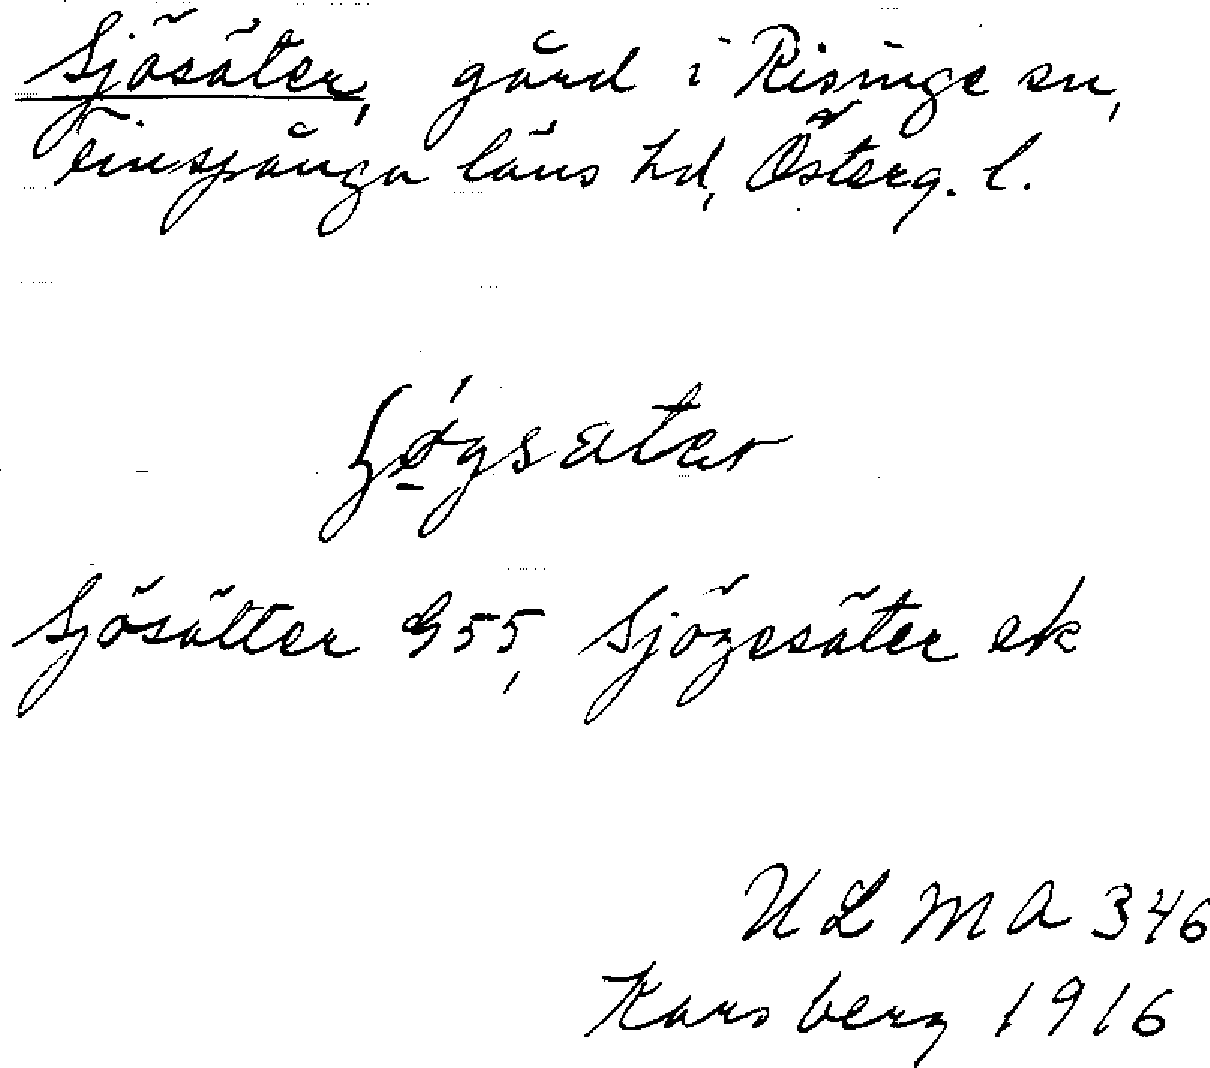 Sjösäter, gård i Risinge sn,
Finspånga läns hd, Österg. l.
Sjösätter G55, Sjögesäter ek
ULMA 346
Karsberg 1916